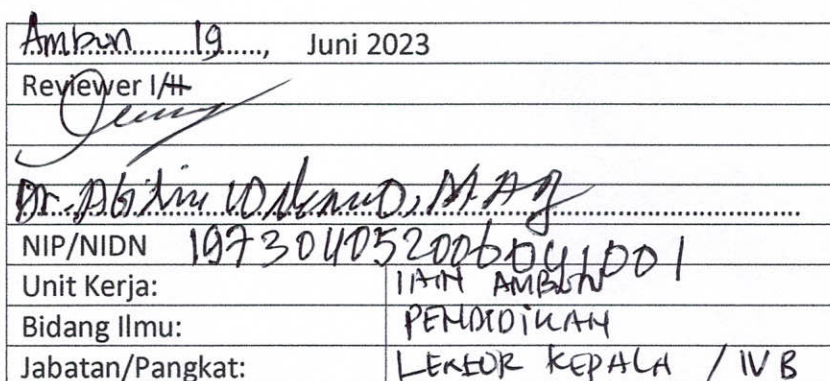 Ambon 19, Juni 2023
Reviewer I/II
Dr. Abidin Wakano, M.Ag
NIP/NIDN 197304052006041001
Unit Kerja: IAIN AMBON
Bidang Ilmu: PENDIDIKAN
Jabatan/Pangkat: LEKTOR KEPALA / IVB